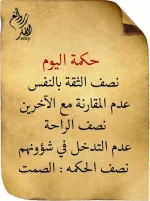 حكمة اليوم
نصف الثقة بالنفس
عدم المقارنة مع الآخرين
نصف الراحة
عدم التدخل في شؤونهم
نصف الحكمه : الصمت